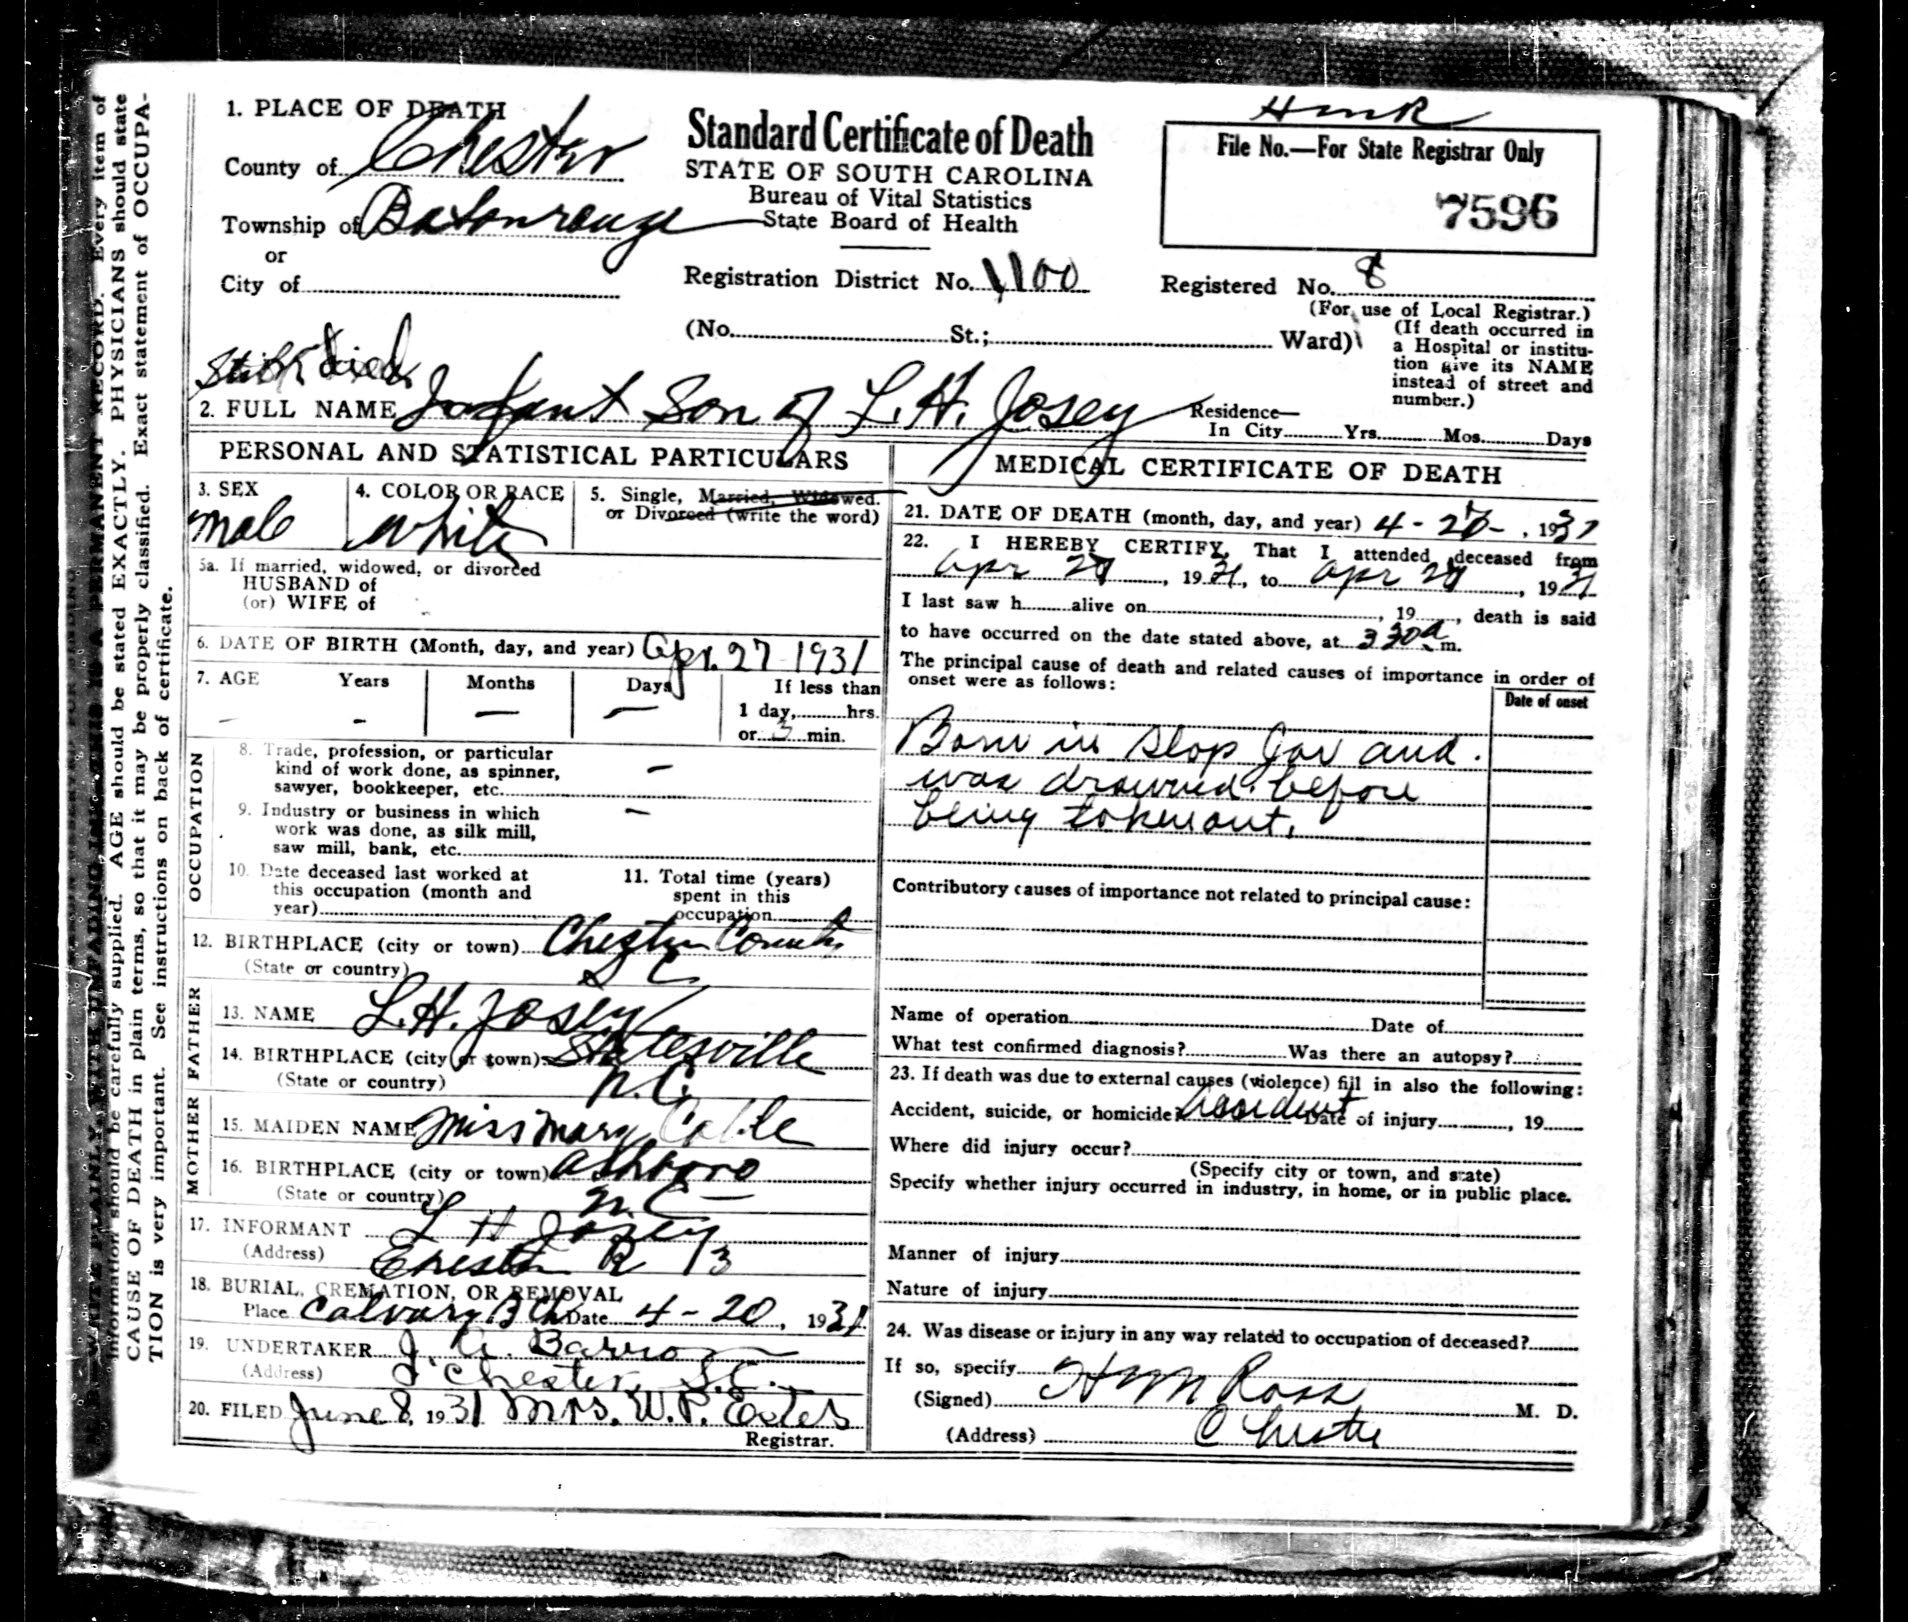 HMR
1. PLACE OF DEATH
County of Chester
Township of Batonrouge
or
City of
Standard Certificate of Death
STATE OF SOUTH CAROLINA
Bureau of Vital Statistics
State Board of Health
File No.—For State Registrar Only
7596
Registration District No. 1100
Registered No. 8
(For use of Local Registrar.)
(No. St.; Ward)
(If death occurred in
a Hospital or institu-
tion give its NAME
instead of street and
number.)
2. FULL NAME Infant Son of L. H. Josey
Residence—
In City Yrs. Mos. Days
PERSONAL AND STATISTICAL PARTICULARS
3. SEX
male
4. COLOR OR RACE
white
5. Single, Married, Widowed.
or Divorced (write the word)
5a. If married, widowed, or divorced
HUSBAND of
(or) WIFE of
6. DATE OF BIRTH (Month, day, and year) Apr. 27 1931
7. AGE Years Months Days If less than
1 day, hrs.
or 3 min.
OCCUPATION
8. Trade, profession, or particular
kind of work done, as spinner,
sawyer, bookkeeper, etc.
9. Industry or business in which
work was done, as silk mill,
saw mill, bank, etc.
10. Date deceased last worked at
this occupation (month and
year)
11. Total time (years)
spent in this
occupation
12. BIRTHPLACE (city or town) Chester County
(State or country) S C
FATHER
13. NAME L. H. Josey
14. BIRTHPLACE (city or town) Statesville
(State or country) N. C.
MOTHER
15. MAIDEN NAME Miss Mary Cable
16. BIRTHPLACE (city or town) Ashboro
(State or country) N. C
17. INFORMANT L H Josey
(Address) Chester R 3
18. BURIAL, CREMATION, OR REMOVAL
Place Calvary B Ch Date 4-20, 1931
19. UNDERTAKER J. A. Barron
(Address) Chester, S.C.
20. FILED June 8, 1931 Mrs. W. P. Estes
Registrar.
MEDICAL CERTIFICATE OF DEATH
21. DATE OF DEATH (month, day, and year) 4-27-, 1931
22. I HEREBY CERTIFY, That I attended deceased from
Apr 27, 1931, to Apr 27, 1931
I last saw h alive on , 19 , death is said
to have occurred on the date stated above, at 3 30 a m.
The principal cause of death and related causes of importance in order of
onset were as follows:
Date of onset
Born in slop Jar and
was drowned before
being taken out.
Contributory causes of importance not related to principal cause:
Name of operation Date of
What test confirmed diagnosis? Was there an autopsy?
23. If death was due to external causes (violence) fill in also the following:
Accident, suicide, or homicide? Accident Date of injury , 19
Where did injury occur?
(Specify city or town, and state)
Specify whether injury occurred in industry, in home, or in public place.
Manner of injury
Nature of injury
24. Was disease or injury in any way related to occupation of deceased?
If so, specify
(Signed) H M Ross M. D.
(Address) Chester
information should be carefully supplied. AGE should be stated EXACTLY. PHYSICIANS should state
CAUSE OF DEATH in plain terms, so that it may be properly classified. Exact statement of OCCUPA-
TION is very important. See instructions on back of certificate.